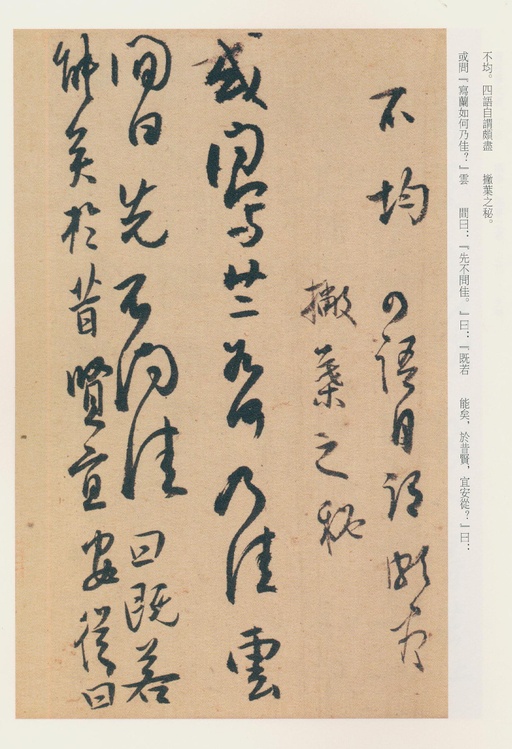 不均。四語自謂頗盡　撇葉之秘。
或問「寫蘭如何乃佳？」雲　間曰：「先不問佳。」曰：「既若　能矣，於昔賢，宜安從？」曰：
不均四語自謂頗盡
撇葉之秘
或問寫蘭如何乃佳雲
間曰先不問佳曰既若
能矣於昔賢宜安從曰